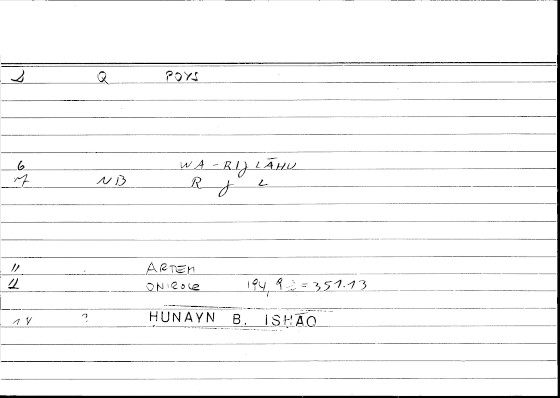 2 Q POYS
6 WA-RIJLĀHU
7 NB R J L
11 ARTEM
12 ONIROC 194, 9 = 351.13
14 ? HUNAYN B. ISHAQ